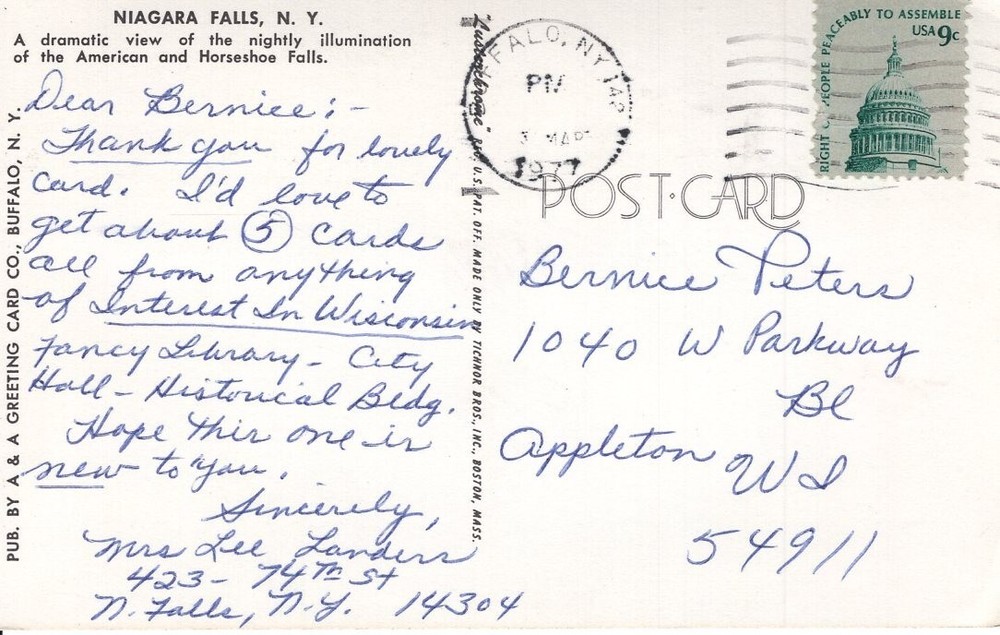 NIAGARA FALLS, N. Y.
A dramatic view of the nightly illumination
of the American and Horseshoe Falls.
Dear Bernice:-
Thank you for lovely
card. I'd love to
get about 5 cards
all from anything
of Interest In Wisconsin
Fancy Library - City
Hall - Historical Bldg.
Hope this one is
new to you.
Sincerely,
Mrs Lee Landers
423 - 74TH St
N. Falls, N.Y. 14304
PUB. BY A & A GREETING CARD CO., BUFFALO, N. Y.
"Lusterchrome" REG. U.S. PAT. OFF. MADE ONLY BY TICHNOR BROS., INC., BOSTON, MASS.
FFALO, NY 142
PM
3 MAR
1977
RIGHT OF PEOPLE PEACEABLY TO ASSEMBLE
USA 9c
POST-CARD
Bernice Peters
1040 W Parkway
Bl
Appleton WI
54911